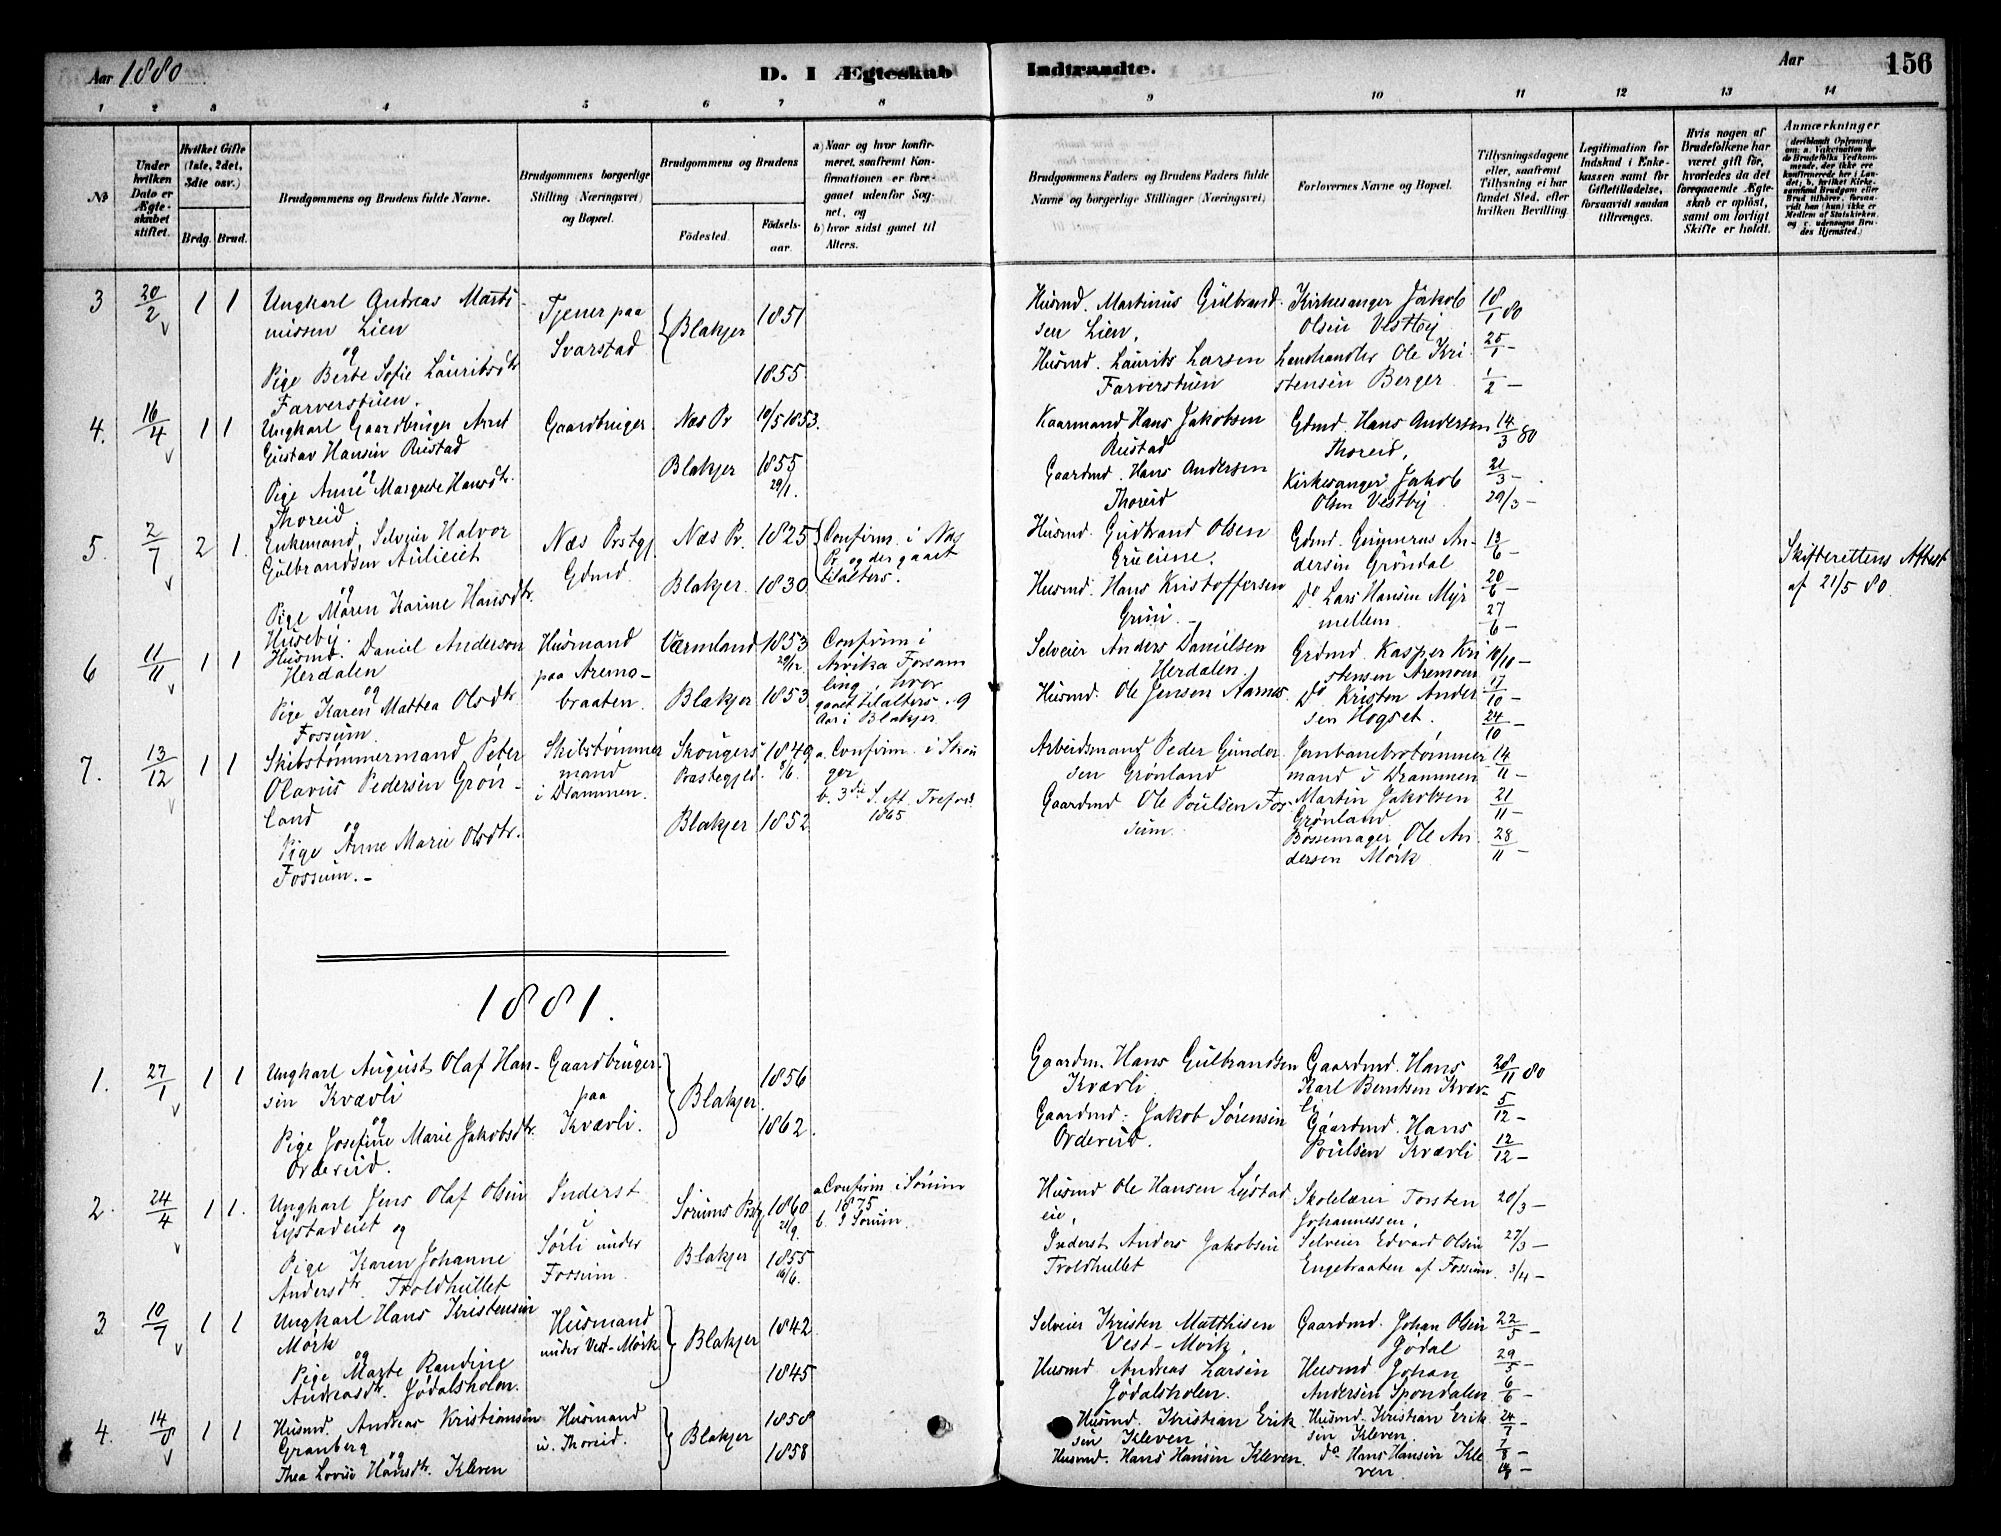 Aar 1880.
D. I Ægteskab
Indtraadte.
Aar
156
1 2 3 4 5 6 7 8
9 10 11 12 13 14
№
Under hvilken Dato er Ægteskabet stiftet.
Hvilket Gifte (1ste, 2det, 3die osv.)
Brdg. Brud.
Brudgommens og Brudens fulde Navne.
Brudgommens borgerlige Stilling (Næringsvei) og Bopæl.
Brudgommens og Brudens
Fødested.
Fødselsaar.
a) Naar og hvor konfirmeret, saafremt Konfirmationen er foregaaet udenfor Sognet, og
b) hvor sidst gaaet til Alters.
Brudgommens Faders og Brudens Faders fulde Navne og borgerlige Stillinger (Næringsvei)
Forlovernes Navne og Bopæl.
Tillysningsdagene eller, saafremt Tillysning ei har fundet Sted, efter hvilken Bevilling.
Legitimation for Indskud i Enkekassen samt for Giftetilladelse, forsaavidt saadan tiltrænges.
Hvis nogen af Brudefolkene har været gift før, hvorledes da det foregaaende Ægteskab er opløst, samt om lovligt Skifte er holdt.
Anmærkninger
3 20/2 1 1
Ungkarl Andreas Marti
nissen Lien
og
Pige Berte Sofie Lauritsdtr
Farverstuen.
Tjener paa
Svarstad
Blakjer
1851
1855
Husmd. Martinus Gulbrand
sen Lien,
Husmd. Laurits Larsen
Farverstuen
Kirkesanger Jakob
Olsen Vestby
Landhandler Ole Kri
stensen Berger
18/1 80
25/1 –
1/2 –
4. 16/4 1 1
Ungkarl Gaardbruger Arnt
Gustav Hansen Rustad
og
Pige Anne Margrete Hansdtr.
Thoreid
Gaardbruger
Næs Pr
Blakjer
10/5 1853.
1855
29/1.
Kaarmand Hans Jakobsen
Rustad
Gaardmd. Hans Andersen
Thoreid
Gdmd. Hans Andersen
Thoreid,
Kirkesanger Jakob
Olsen Vestby
14/3 80
21/3 –
29/3 –
5. 2/7 2 1.
Enkemand, Selveier Halvor
Gulbrandsen Aulieiet
og
Pige Maren Karine Hansdtr.
Huseby.
Næs Prstgj.
Gdmd
Næs Pr.
Blakjer
1825
1830
Confirm. i Næs
Pr. og der gaaet
tilalters.
Husmd. Gudbrand Olsen
Grueiene.
Husmd. Hans Kristoffersen
Gruni –
Gdmd. Gunnerus An
dersen Grøndal
Do Lars Hansen Myr
mellem
13/6 –
20/6 –
27/6 –
Skifterettens Attest
af 21/5 80.
6 11/11 1 1
Husmd. Daniel Anderson
Herdalen
og
Pige Karen Mattea Olsdtr
Fossum
Husmand
paa Aremo-
braaten.
Værmland
Blakjer
1853
29/12
1853
Confirm i
Arvika Forsam
ling, hvor
gaaet tilalters. 9
Aar i Blakjer
Selveier Anders Danielsen
Herdalen
Husmd. Ole Jensen Aarnes
Grdmd. Kasper Kri
stensen Aremoen
Do Kristen Ander
sen Hogset.
10/10 –
17/10 –
24/10 –
7. 13/12 1 1
Skibstømmermand Peter
Olavus Pedersen Grøn-
land
og
Pige Anne Marie Olsdtr.
Fossum. –
Skibstømmer
mand
i Drammen.
Skougers
Præstegjeld
Blakjer
1849
8/6.
1852
a. Confirm. i Skou
ger
b. 3die S. eft. Trefold.
1865
Arbeidsmand Peder Gunder
sen Grønland
Gaardmd Ole Poulsen Fos-
sum
Jernbanebrotømmer
mand i Drammen
Martin Jakobsen
Grønland
Bøssemager Ole An
dersen Mørk
14/11 –
21/11 –
28/11 –
1881.
1. 27/1 1 1
Ungkarl August Olaf Han-
sen Kvævli
og
Pige Josefine Marie Jakobsdtr.
Ordereid.
Gaardbruger
paa
Kvævli.
Blakjer
1856
1862
Gaardm. Hans Gulbrandsen
Kvævli
Gaardmd. Jakob Sørensen
Ordereid.
Gaardmd. Hans
Karl Berntsen Kvæv-
li
Gaardmd. Hans
Poulsen Kvævli
28/11 80
5/12 –
12/12 –
2. 24/4 1 1.
Ungkarl Jens Olaf Olsen
Lystadeiet og
Pige Karen Johanne
Andersdtr. Troldhullet
Inderst
i
Sørli under
Fossum.
Sørums Pstgj
Blakjer
1860
21/9.
1855
16/6.
a Confirm i Sørum
1875
b. I Sørum
Husmd Ole Hansen Lystad
eie,
Inderst Anders Jakobsen
Troldhullet
Skolelærer Torsten
Johannessen,
Selveier Edvard Olsen
Engebraaten af Fossum
20/3 –
27/3 –
3/4 –
3. 10/7 1 1
Ungkarl Hans Kristensen
Mørk
og
Pige Marte Randine
Andreasdtr. Jødalsholen.
Husmand
under Vest-Mørk
Blakjer
1842
1845
Selveier Kristen Matthisen
Vest-Mørk,
Husmd Andreas Larsen
Jødalsholen.
Gaardmd. Johan Olsen
Jødal
Husmd Johan
Andersen Spondalen
22/5 –
29/5 –
6/6 –
4. 14/8 1 1
Husmd. Andreas Kristiansen
Granberg
og
Thea Lovise Hansdtr. Kleven
Husmand
u. Thoreid.
Blakjer
1858
1858
Husmd. Kristian Erik
sen Kleven
Husmd. Hans Hansen Kleven.
Husmd. Kristian Erik
sen Kleven.
do Hans Hansen Kle
ven.
24/7 –
7/8 –
14/8 –